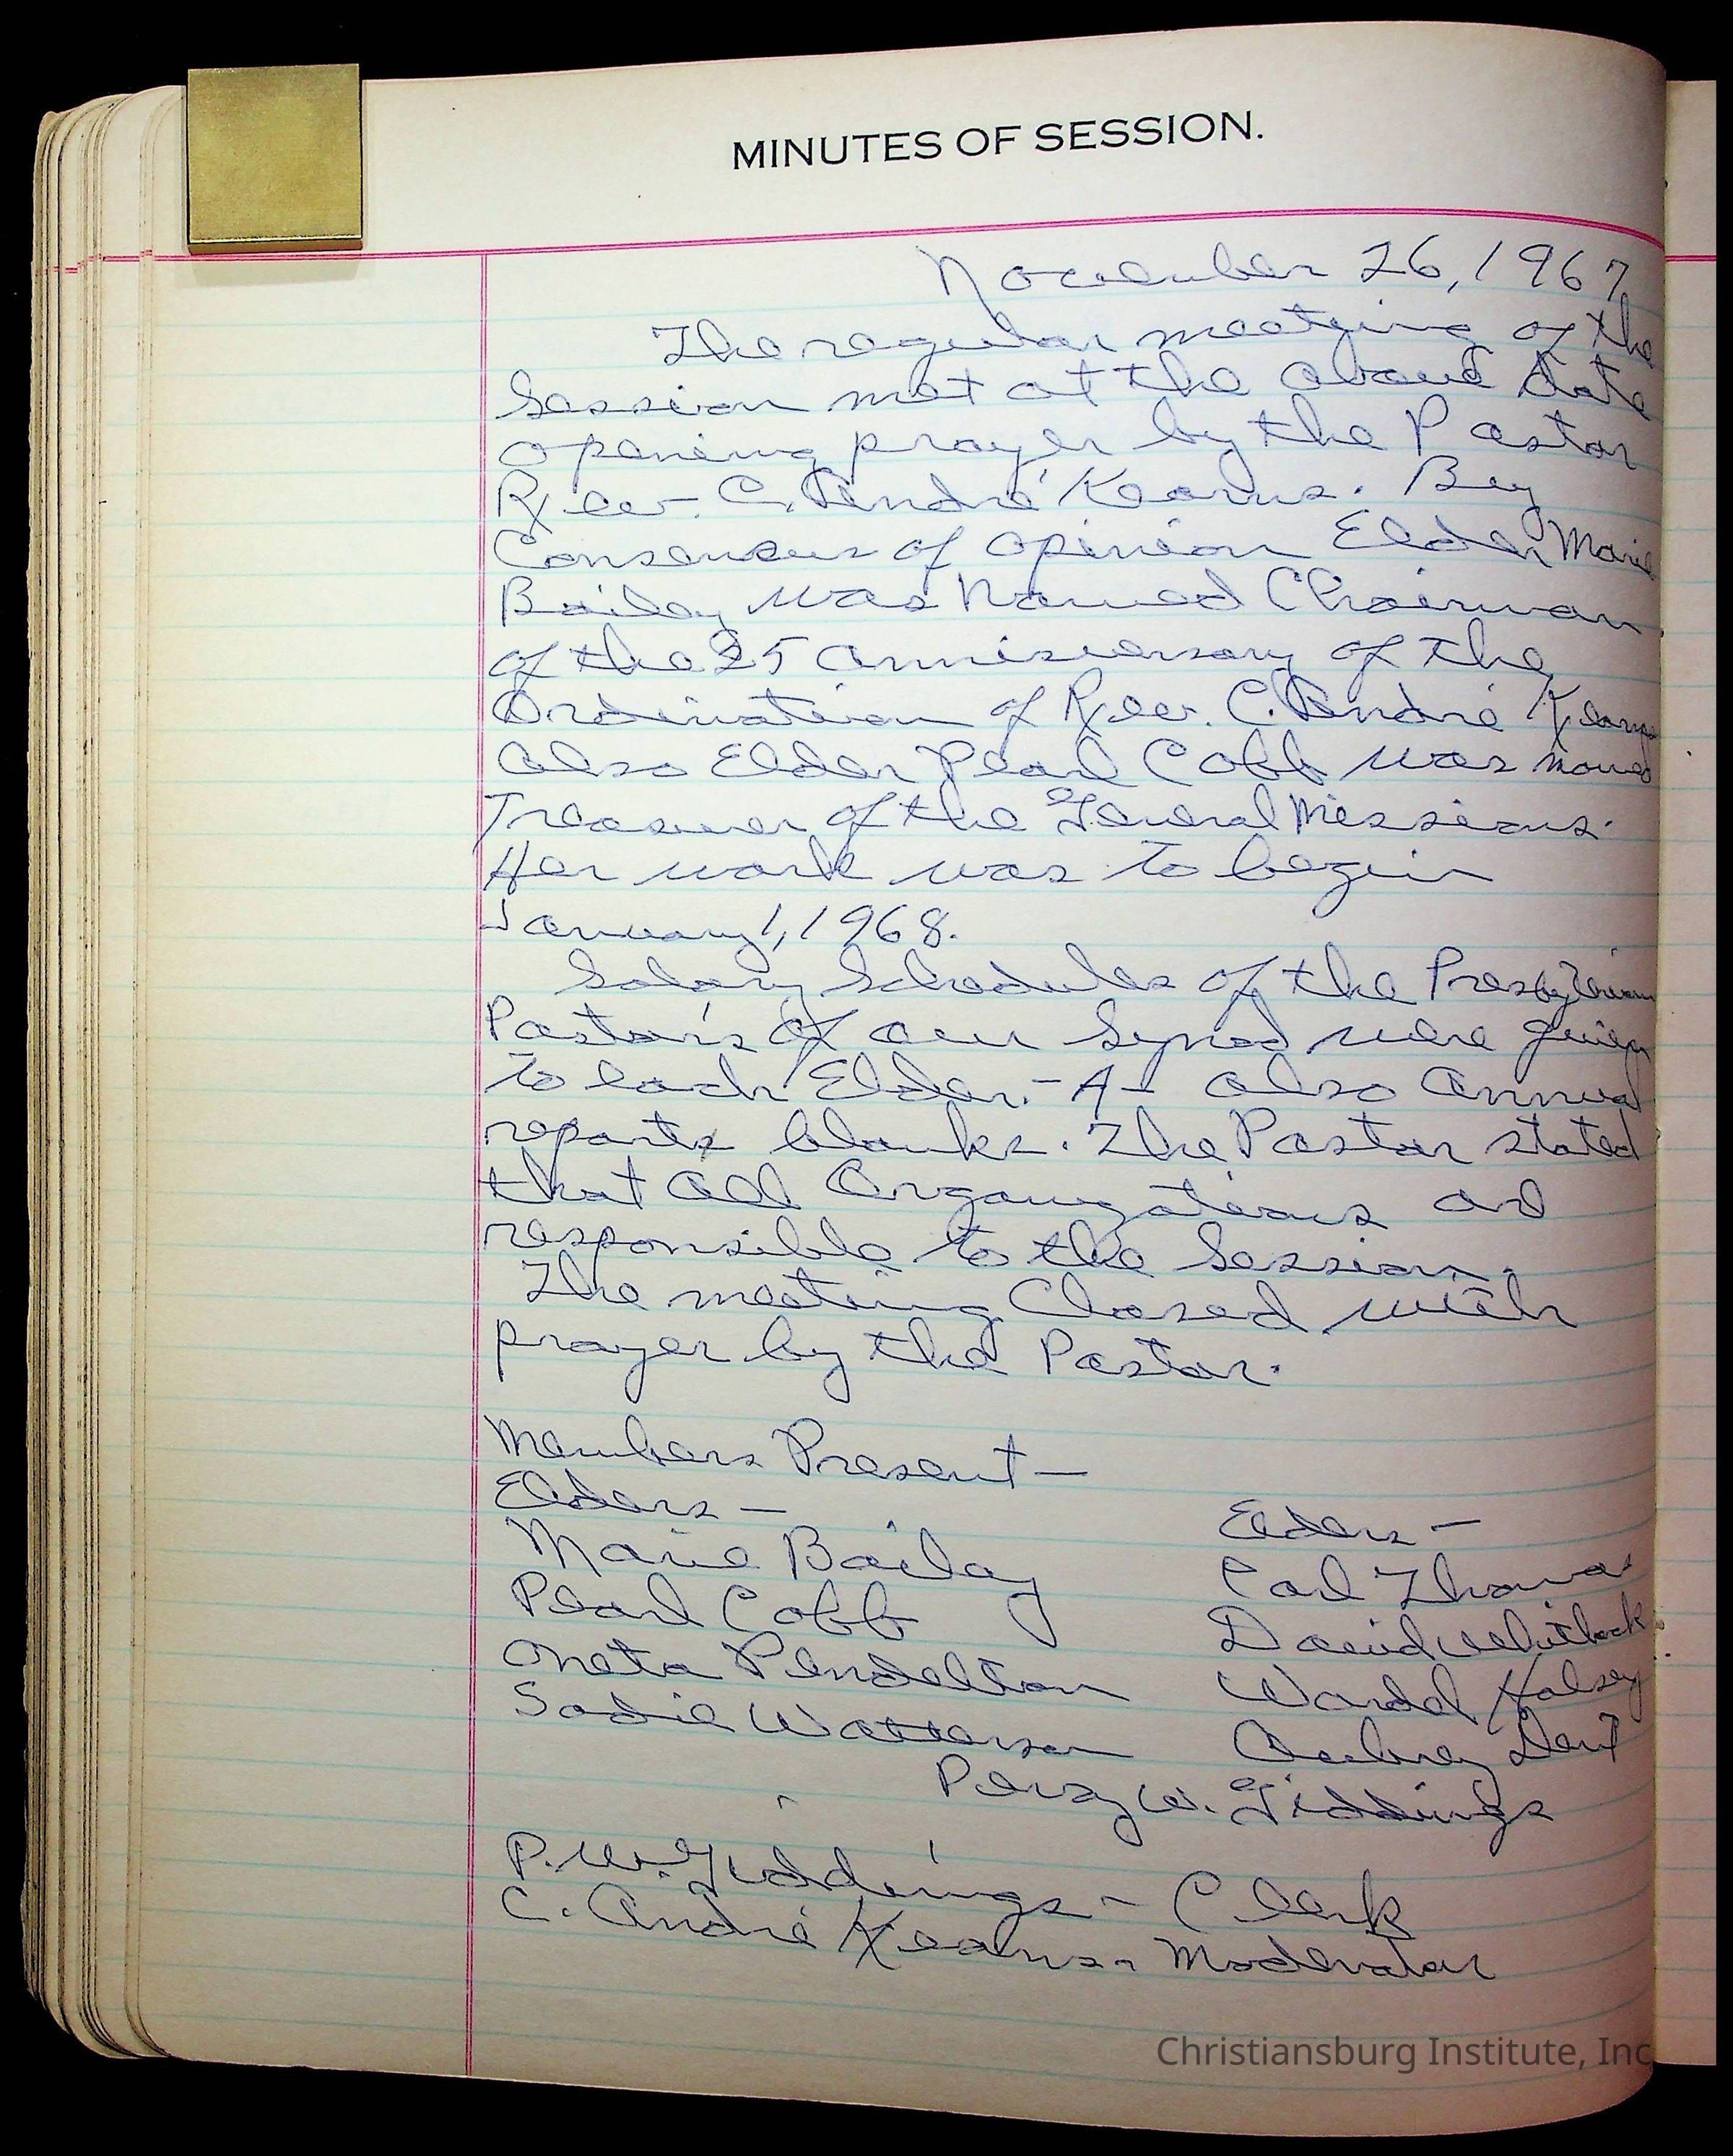 MINUTES OF SESSION.
November 26, 1967
The regular meeting of the
Session met at the above date
opening prayer by the Pastor
Rev. C. André Kearns. By
Consensus of opinion Elder Marie
Bailey was named Chairman
of the 25 anniversary of the
Ordination of Rev. C. André Kearns
also Elder Pearl Cobb was named
Treasurer of the General Missions.
Her work was to begin
January 1, 1968.
Salary Schedules of the Presbyterian
Pastor's of our Synod were given
to each Elder. - A - also Annual
reports blanks. The Pastor stated
that all Organizations are
responsible to the Session.
The meeting Closed with
prayer by the Pastor.
Members Present —
Elders —
Marie Bailey
Pearl Cobb
Oneta Pendelton
Sadie Watterson
Elders —
Carl Thomas
David Whitlock
Wardel Halsey
Aubrey Dent
Percy W. Giddings
P. W. Giddings - Clerk
C. André Kearns - Moderator
Christiansburg Institute, Inc